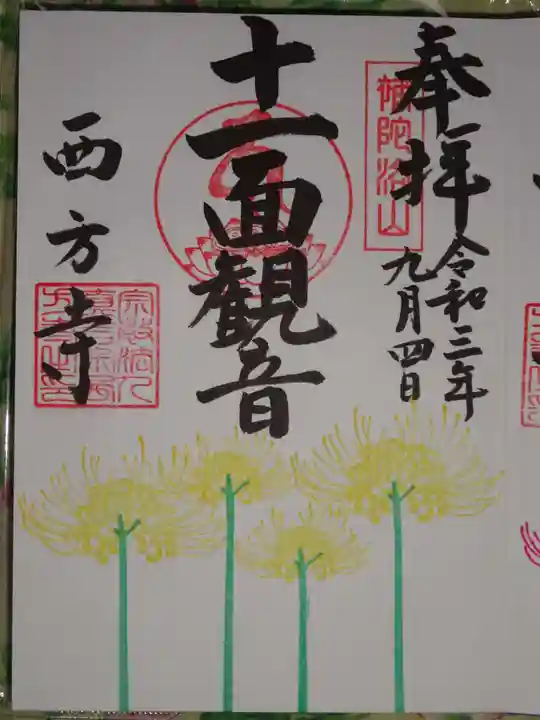 奉拝
補陀洛山
令和三年
九月四日
十一面観音
西方寺